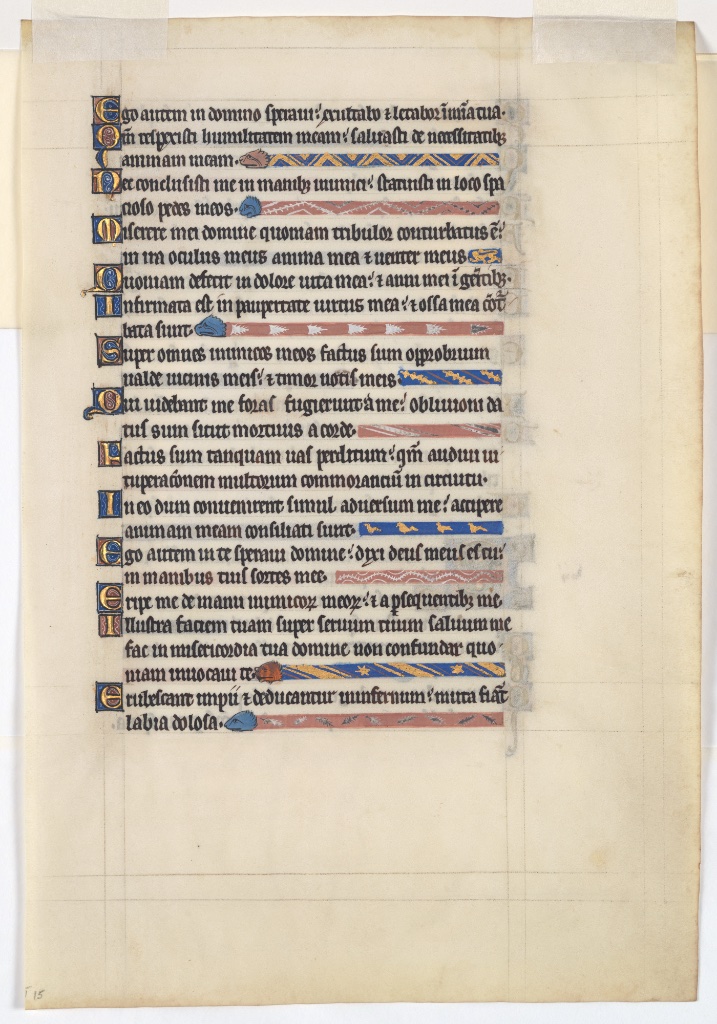 Ego autem in domino speraui: exultabo ⁊ letabor ī mīa tua.
Qm̄ respexisti humilitatem meam: saluasti de necessitatibꝫ
animam meam.
Nec conclusisti me in manibꝫ inimici: statuisti in loco spa
cioso pedes meos.
Miserere mei domine quoniam tribulor conturbatus ē:
in ira oculus meus anima mea ⁊ uenter meus
Quoniam defecit in dolore uita mea: ⁊ anni mei ī gē
Infirmata est in paupertate uirtus mea: ⁊ ossa mea cōt̄
bata sunt.
Super omnes inimicos meos factus sum opprobrium
ualde uicinis meis: ⁊ timor notis meis
Qui uidebant me foras fugierunt a me: obliuioni da
tus sum sicut mortuus a corde.
Factus sum tanquam uas perditum: qm̄ audiui ui
tuperacōnem multorum commoranciū in circuitu.
In eo dum conuenirent simul aduersum me: accipere
animam meam consiliati sunt.
Ego autem in te speraui domine: dixi deus meus es tu:
in manibus tuis sortes mee.
Eripe me de manu inimicoꝝ meoꝝ: ⁊ a ꝑsequentibꝫ me.
Illustra faciem tuam super seruum tuum saluum me
fac in misericordia tua domine non confundar quo
niam inuocaui te.
Erubescant impii ⁊ deducantur in infernum: muta fiāt
labia dolosa.
T 15